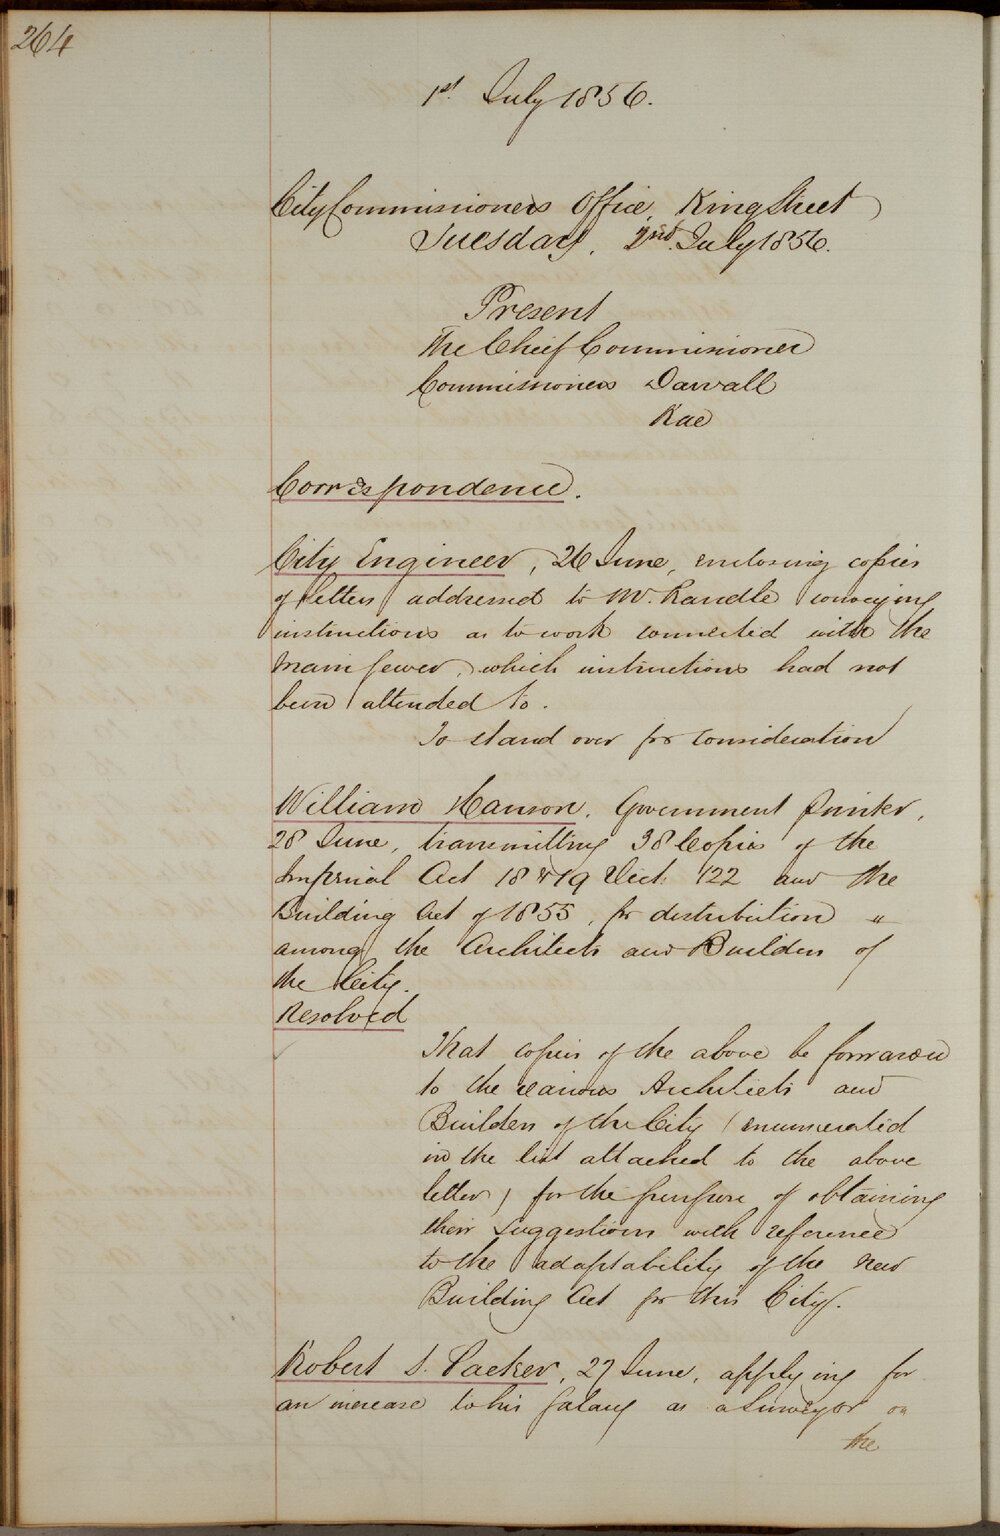 264
1st. July 1856.
City Commissioners Office, King Street
Tuesday, 2nd. July 1856.
Present
The Chief Commissioner
Commissioners Darvall
Rae
Correspondence.
City Engineer, 26 June, enclosing copies
of letters addressed to Mr. Randle conveying
instructions as to work connected with the
Main sewer, which instructions had not
been attended to.
To stand over for consideration
William Hanson, Government Printer,
28 June, transmitting 38 Copies of the
Imperial Act 18 & 19 Vict. 122 and the
Building Act of 1855, for distribution "
among the Architects and Builders of
the City.
Resolved
That copies of the above be forwarded
to the various Architects and
Builders of the City (enumerated
in the list attached to the above
letter) for the purpose of obtaining
their suggestions with reference
to the adaptability of the new
Building Act for this City.
Robert S. Packer, 27 June, applying for
an increase to his salary as a Surveyor on
the